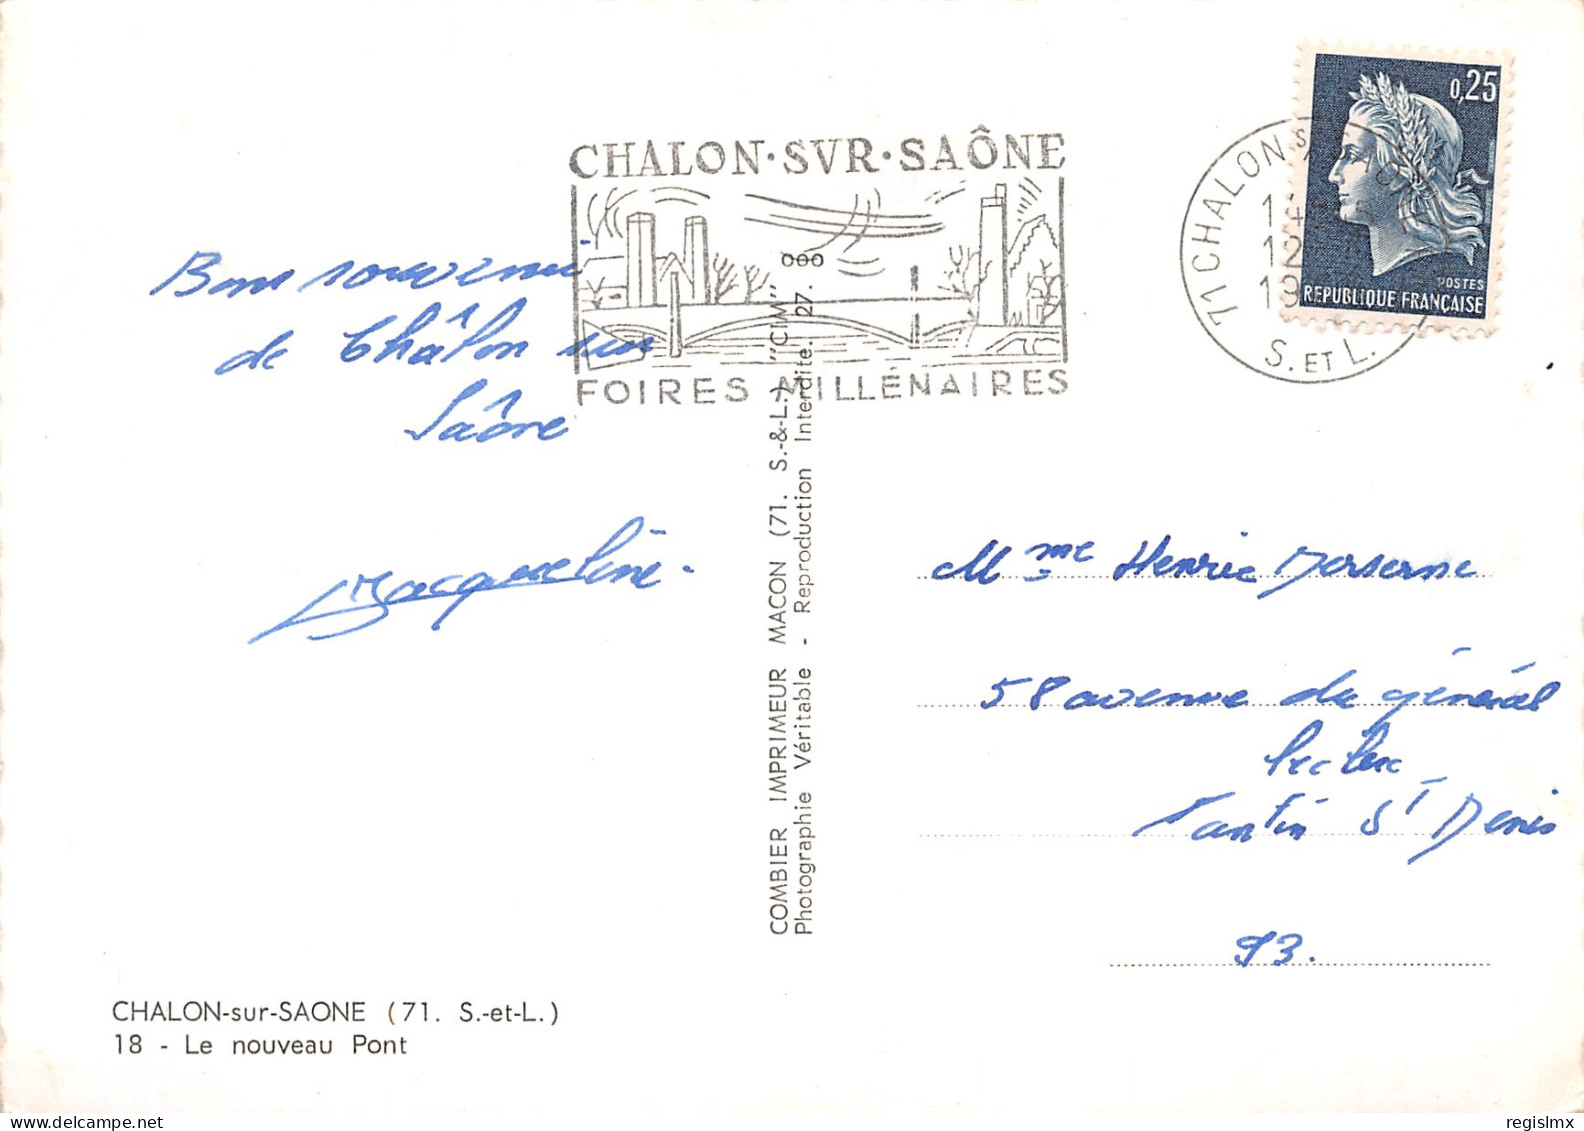 CHALON·SVR·SAÔNE
FOIRES MILLÉNAIRES
0,25
POSTES
REPUBLIQUE FRANÇAISE
71 CHALON S
12
S. ET L.
Bons souvenir
de Châlon sur
Saône
Jacqueline.
COMBIER IMPRIMEUR MACON (71. S.-&-L.) "CIM"
Photographie Véritable - Reproduction Interdite. 27.
Mme Henrie
58 avenue du général
leclerc
Pantin St Denis
93.
CHALON-sur-SAONE (71. S.-et-L.)
18 - Le nouveau Pont
regislmx